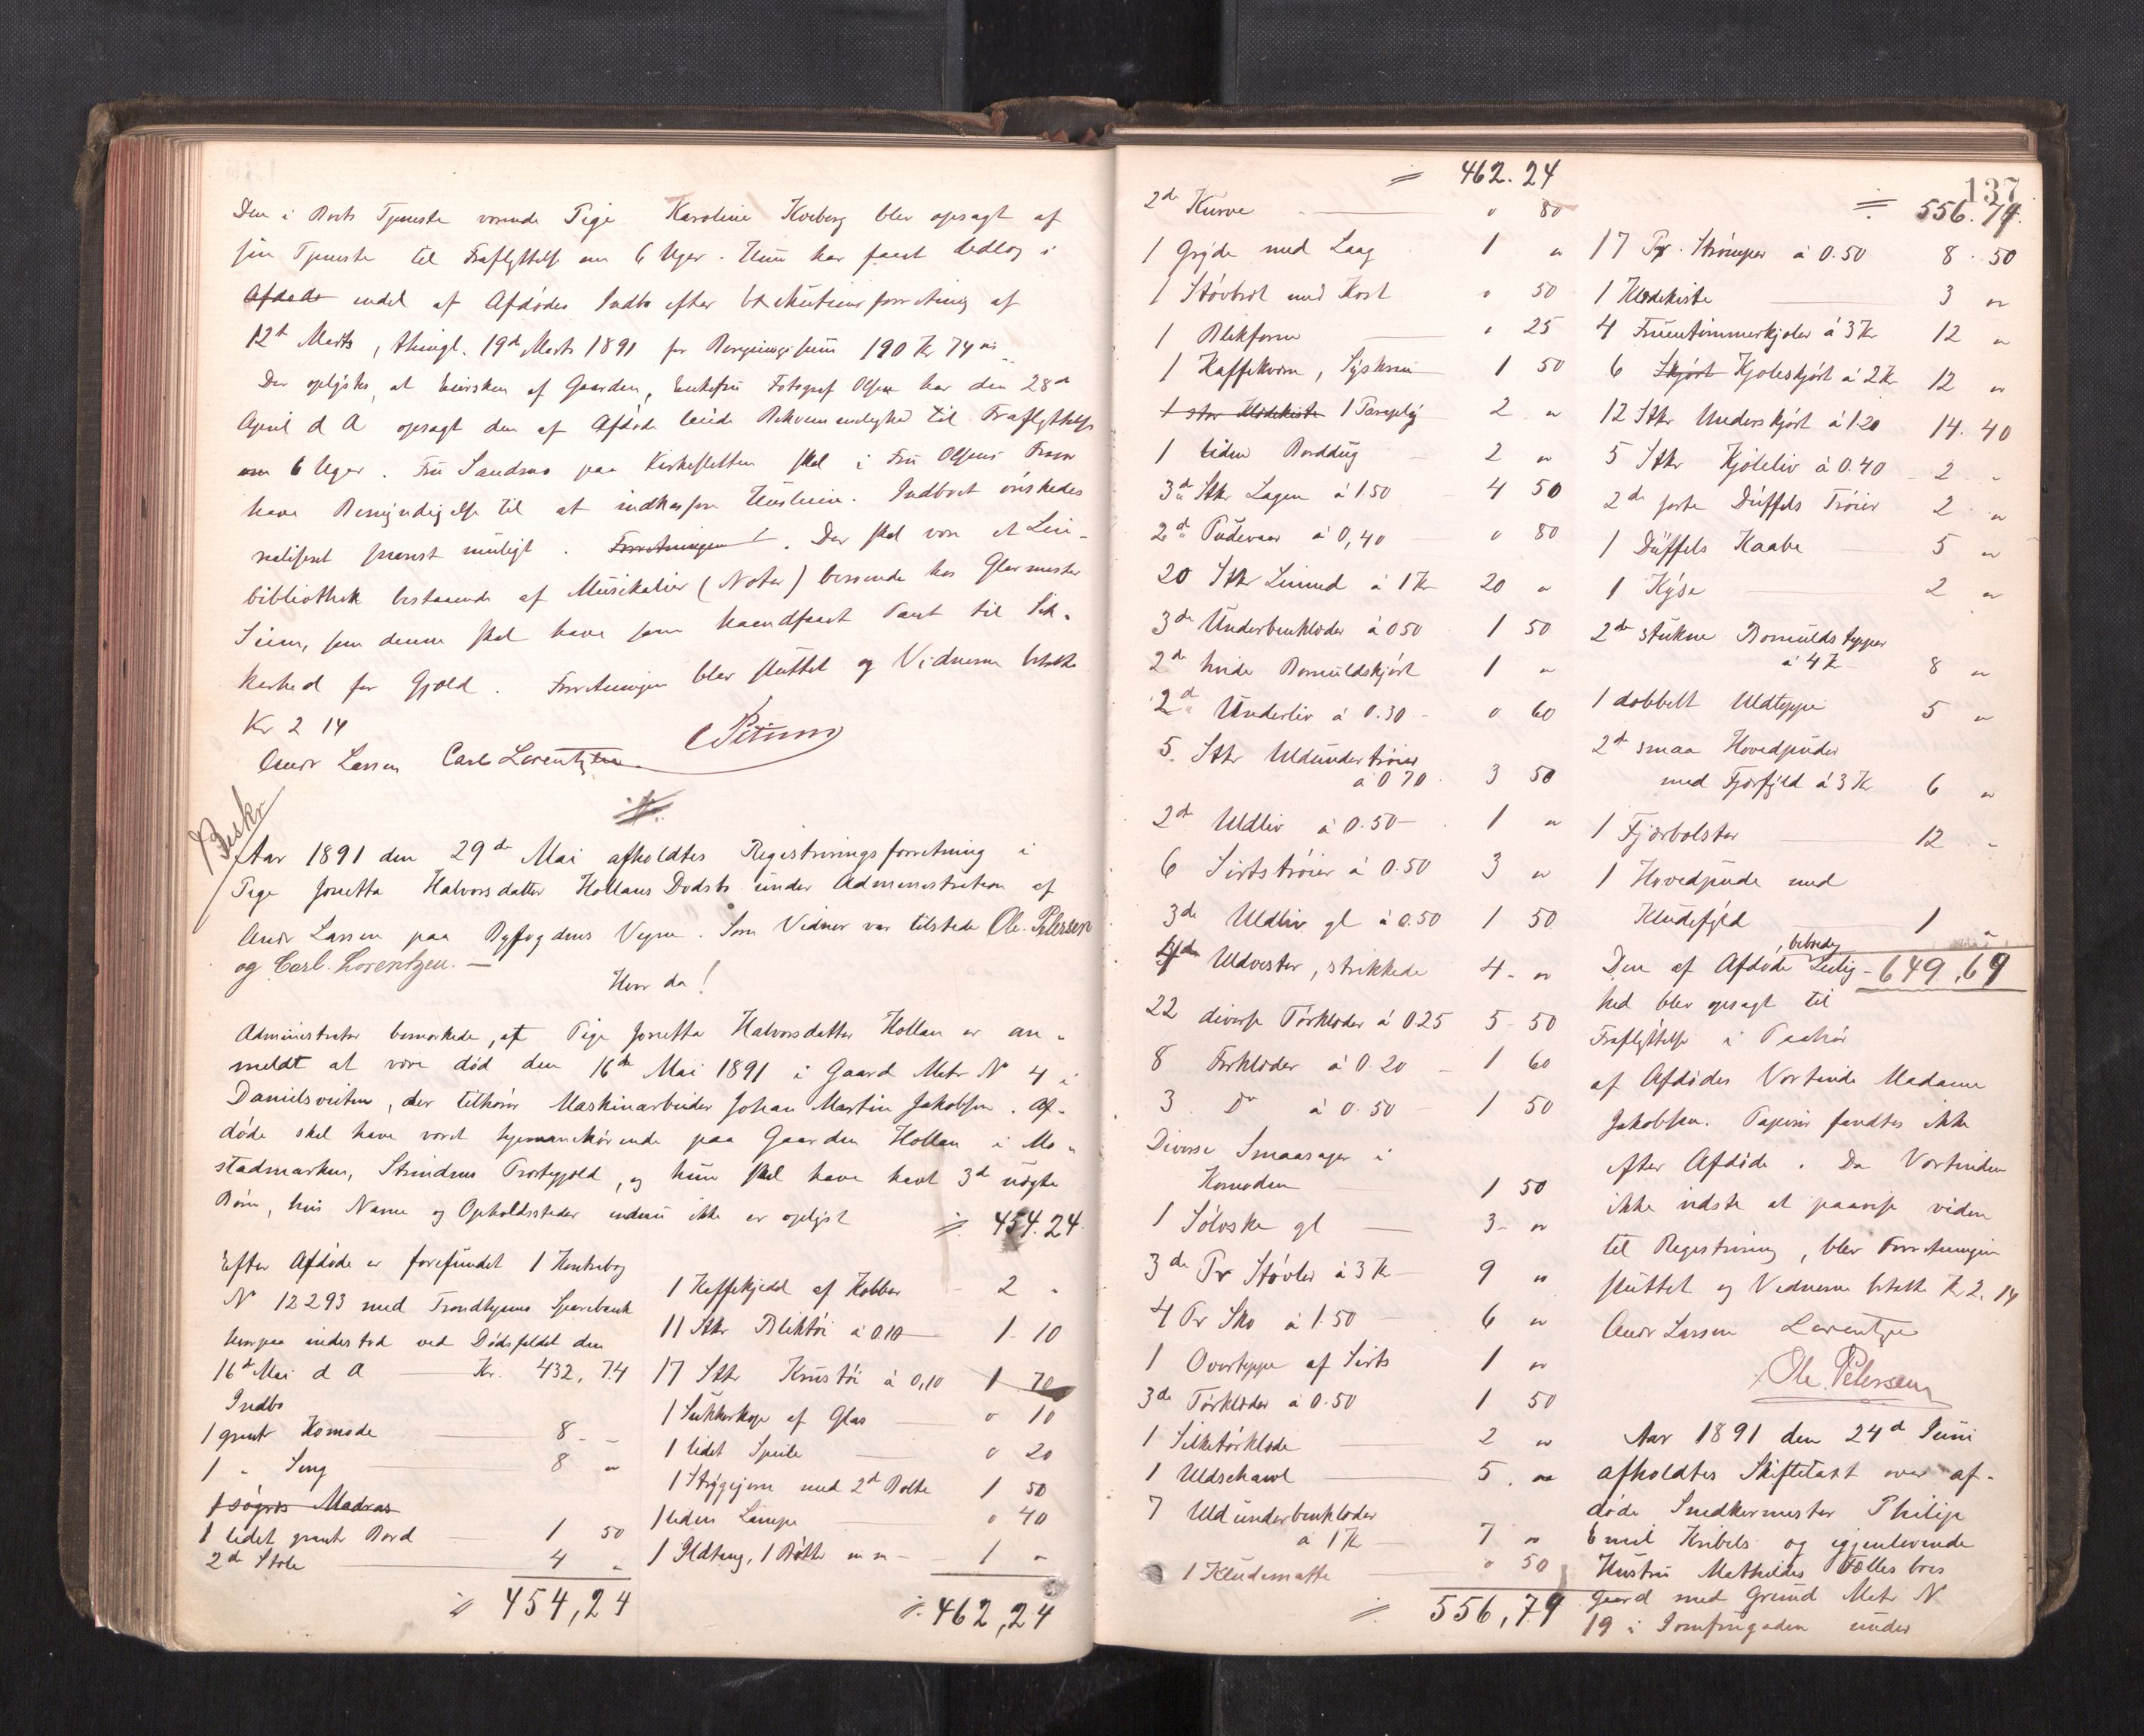 Den i Boets Tjeneste værende Pige Karoline Hoeberg blev opsagt af
sin Tjeneste til Fraflyttelse om 6 Uger. Hun har faaet Udlæg i
Afdøde endel af Afdødes Indbo efter Exekutionsforretning af
12te Marts, thingl. 19de Marts 1891 for Bergningssum 190 Kr 74 øre
Der oplystes, at Eiersken af Gaarden, Enkefru Fotograf Olsen har den 28de
April d A opsagt den af Afdøde leiede Bekvemmelighed til Fraflyttelse
om 6 Uger. Fru Sandmo paa Kirkesletten skal i Fru Olsens Fravær
have Bemyndigelse til at indkassere Husleien. Indboet ønskedes
realiseret snarest muligt. Forretningen. Der skal være et Leie-
bibliothek bestaaende af Musikalier (Noter) beroende hos Glarmester
Siem, som denne skal have som haandfaaet Pant til Sik-
kerhed for Gjæld. Forretningen blev sluttet og Vidnerne betalte
Kr 2 14
Andr Larsen Carl Lorentzen
Beskr
Aar 1891 den 29de Mai afholdtes Registreringsforretning i
Pige Jonetta Halvorsdatter Hollans Dødsbo under Administration af
Andr Larsen paa Byfogdens Vegne. Som Vidner var tilstede Ole Petersen
og Carl Lorentzen. —
Hvor da!
Administrator bemærkede, at Pige Jonetta Halvorsdatter Hollan er an-
meldt at være død den 16de Mai 1891 i Gaard Matr N 4 i
Danielsveiten, der tilhører Maskinarbeider Johan Martin Jakobsen. Af-
døde skal have været hjemmehørende paa Gaarden Hollan i Mo-
stadmarken, Strindens Præstegjæld, og hun skal have havt 3de uægte
Børn, hvis Navne og Opholdssteder endnu ikke er oplyst
Efter Afdøde er forefundet 1 Kontrabog
N 12293 med Trondhjems Sparebank
hvorpaa indestod ved Dødsfaldet den
16de Mai d A — Kr. 432,74
Indbo
1 grønt Komode 8 -
1 " Seng 8 "
1 søgræs Madras
1 lidet grønt Bord 1 50
2de Stole 4 "
454,24
454.24
1 Kaffekjedel af Kobber 2 "
11 Stkr Bliktøi à 0.10 1 10
17 Stkr Krustøi à 0,10 1 70
1 Sukkerkop af Glas 0 10
1 lidet Speile 0 20
1 Strygejern med 2de Bolte 1 50
1 liden Lampe 0 40
1 Ildtang, 1 Bøtte m m 1 "
462,24
462.24
2de Kurve 0 80
1 Gryde med Laag 1 "
1 Støvbret med Kost " 50
1 Blikform " 25
1 Kaffekværn, Syskrin 1 50
1 stor Klædekiste 1 Paraply 2 "
1 liden Borddug 2 "
3de Stkr Lagen à 1.50 4 50
2de Pudevaar à 0,40 0 80
20 Stkr Linned à 1 Kr 20 "
3de Underbenklæder à 0 50 1 50
2de hvide Bomuldskjørt 1 "
2de Underliv à 0.30 0 60
5 Stkr Uldundertrøier
à 0 70 3 50
2de Uldliv à 0.50 1 "
6 Sirtstrøier à 0.50 3 "
3de Uldliv gl à 0.50 1 50
4de Uldvester, strikkede 4 "
22 diverse Tørklæder à 0.25 5 50
8 Forklæder à 0.20 1 60
3 Do à 0.50 1 50
Diverse Smaasager i
Komoden 1 50
1 Sølvske gl 3 "
3de Pr Støvler à 3 Kr 9 "
4 Pr Sko à 1.50 6 "
1 Overteppe af Sirts 1 "
3de Tørklæder à 0.50 1 50
1 Silketørklæde 2 "
1 Uldschawl 5 "
7 Uldunderbenklæder
à 1 Kr 7 "
1 Kludematte 0 50
556,74
137
556.74
17 Pr. Strømper à 0.50 8 50
1 Klædekiste 3 "
4 Fruentimmerkjoler à 3 Kr 12 "
6 Skjørt Kjoleskjørt à 2 Kr 12 "
12 Stkr Underskjørt à 1.20 14. 40
5 Stkr Kjoleliv à 0.40 2 "
2de sorte Düffels Trøier 2 "
1 Düffels Kaabe 5 "
1 Kyse 2 "
2de stukne Bomuldstepper
à 4 Kr 8 "
1 dobbelt Uldteppe 5 "
2de smaa Hovedpuder
med Fjærfyld à 3 Kr 6 "
1 Fjærbolster 12 "
1 Hovedpude med
Kludefyld 1 "
Den af Afdøde beboede Leilig- 649,64
hed blev opsagt til
Fraflyttelse i Paahør
af Afdødes Vertinde Madame
Jakobsen. Papirer fandtes ikke
efter Afdøde. Da Vertinden
ikke vidste at paavise videre
til Registrering, blev Forretningen
sluttet og Vidnerne betalte Kr 2.14
Andr Larsen Lorentzen
Ole Petersen
Aar 1891 den 24de Juni
afholdtes Skiftetaxt over af-
døde Snedkermester Philip
Emil Kribels og gjenlevende
Hustru Mathildes Fælles boes
Gaard med Grund Matr N
19 i Jomfrugaden under